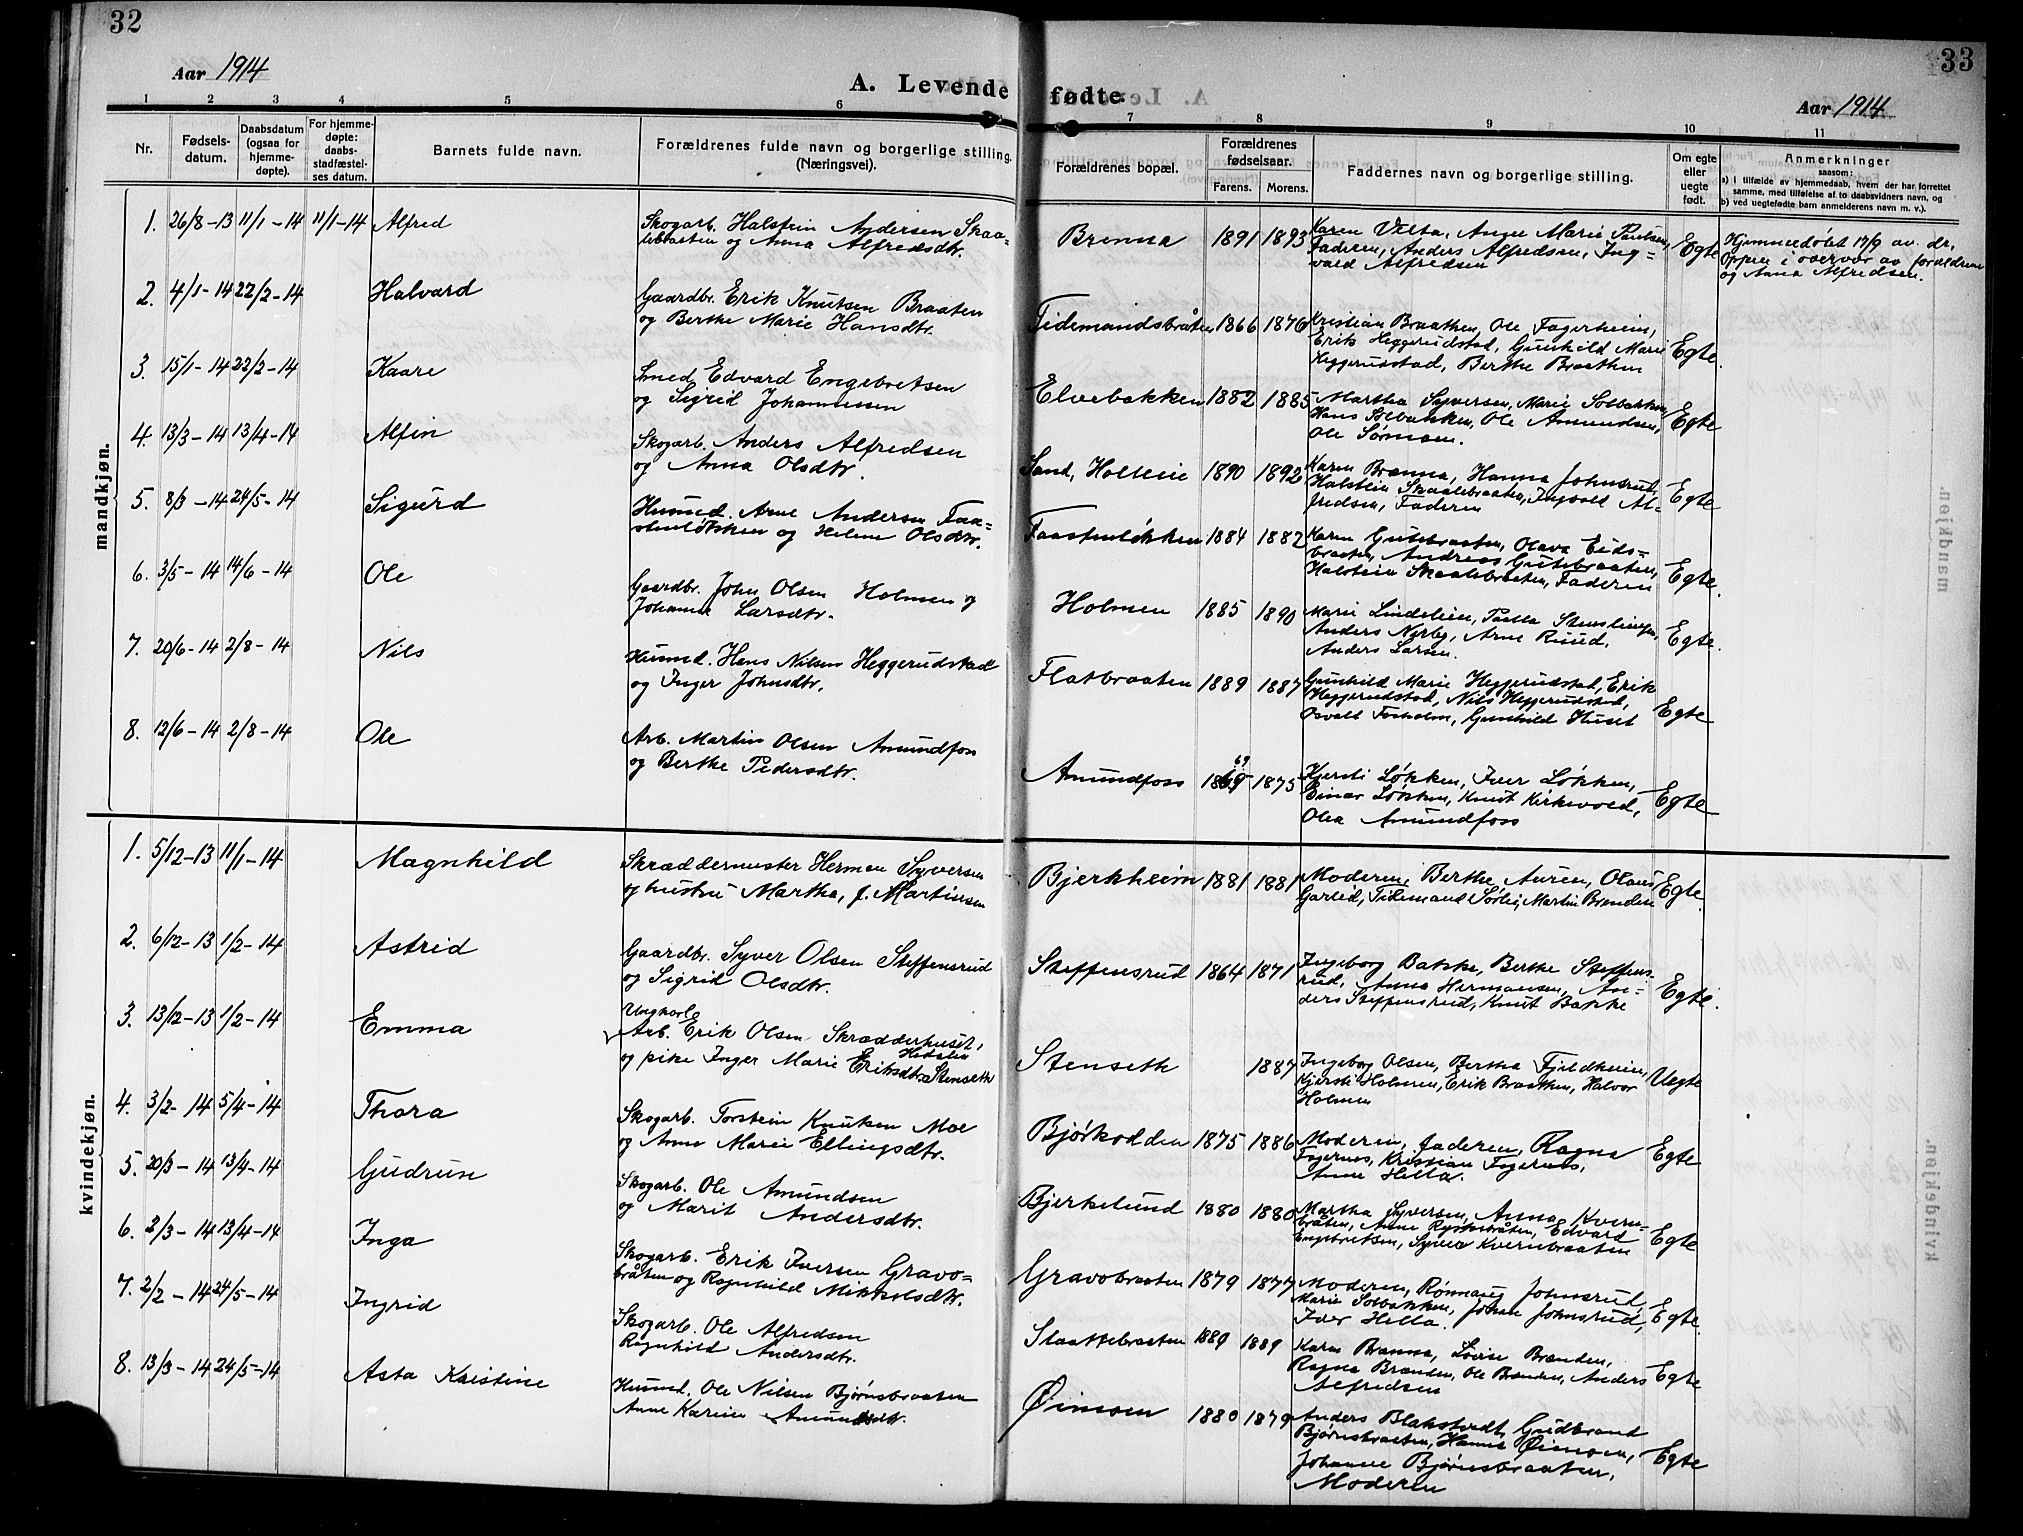 32
Aar 1914
A. Levende fødte.
33
Aar 1914
1 2 3 4 5 6 7 8 9 10 11
Nr.
Fødsels-
datum.
Daabsdatum
(ogsaa for
hjemme-
døpte).
For hjemme-
døpte:
daabs-
stadfæstel-
ses datum.
Barnets fulde navn.
Forældrenes fulde navn og borgerlige stilling.
(Næringsvei).
Forældrenes bopæl.
Forældrenes
fødselsaar.
Farens. Morens.
Faddernes navn og borgerlige stilling.
Om egte
eller
uegte
født.
Anmerkninger
saasom:
a) i tilfælde av hjemmedaab, hvem der har forrettet
samme, med tilføielse af to daabsvidners navn, og
b) ved uegtefødte barn anmelderens navn m. v.).
mandkjøn.
1. 26/8-13 11/1-14 11/1-14 Alfred
Skogarb. Halstein Andersen Skaa-
lebraaten og Anna Alfredsdtr.
Brenna 1891 1893
Karen Velta, Anne Marie Paulsen,
Faderen, Anders Alfredsen, Ing-
vald Alfredsen
Egte
Hjemmedøbt 17/9 av dr.
Oppen i overvær av forældrene
og Anna Alfredsen.
2. 4/1-14 22/2-14 Halvard
Gaardbr. Erik Knutsen Braaten
og Berthe Marie Hansdtr.
Tidemandsbråten 1866 1876
Kristian Braathen, Ole Fagerheim,
Erik Heggerudstad, Gunhild Marie
Heggerudstad, Berthe Braathen
Egte.
3. 15/1-14 22/2-14 Kaare
Smed Edvard Engebretsen
og Sigrid Johannessen
Elvebakken 1882 1885
Martha Syversen, Marie Solbakken,
Hans Solbakken, Ole Amundsen,
Ole Sørmoen.
Egte
4. 13/3-14 13/4-14 Alfin
Skogarb. Anders Alfredsen
og Anna Olsdtr.
Sand, Holleie 1890 1892
Karen Brænna, Hanna Johnsrud,
Halstein Skaalebraaten, Ingvald Al-
fredsen, Faderen
Egte
5. 8/3-14 24/5-14 Sigurd
Husmd. Arne Andersen Faa-
stenløkken og Helene Olsdtr.
Faastenløkken 1884 1882
Karen Gutebraaten, Olava Eids-
braaten, Andreas Gutebraaten,
Halstein Skaalebraaten, Faderen
Egte.
6. 3/5-14 14/6-14 Ole
Gaardbr. John Olsen Holmen og
Johanne Larsdtr.
Holmen 1885 1890
Marie Lindelien, Paella Stensleingen,
Anders Nerby, Arne Ruud,
Anders Larsen.
Egte.
7. 20/6-14 2/8-14 Nils
Husmd. Hans Nilsen Heggerudstad
og Inger Johnsdtr.
Flatbraaten 1889 1887
Gunhild Marie Heggerudstad, Erik
Heggerudstad, Nils Heggerudstad,
Osvald Fosholm, Gunhild Huset
Egte
8. 12/6-14 2/8-14 Ole
Arb. Martin Olsen Amundfoss
og Berthe Pedersdtr.
Amundfoss 1869 1875
Kjersti Løkken, Iver Løkken,
Einar Løkken, Knut Kirkevold,
Olea Amundfoss
Egte
kvindekjøn.
1. 5/12-13 11/1-14 Magnhild
Skræddermester Herman Syversen
og hustru Martha, f. Martinsen
Bjerkheim 1881 1881
Moderen, Berthe Auren, Olaus
Garlid, Tidemand Sørlie, Martin Brenden
Egte.
2. 6/12-13 1/2-14 Astrid
Gaardbr. Syver Olsen Steffensrud
og Sigrid Olsdtr.
Steffensrud 1864 1871
Ingeborg Bakke, Berthe Steffens-
rud, Anna Hermansen, An-
ders Steffensrud, Knut Bakke
Egte.
3. 13/12-13 1/2-14 Emma
Ungkarl
Arb. Erik Olsen Skrædderhuset,
Hedalen
og pike Inger Marie Eriksdtr. Stenseth
Stenseth 1887
Ingeborg Olsen, Bertha Fjeldheim,
Kjersti Holmen, Erik Braathen, Halvor
Holmen
Uegte
4. 3/2-14 5/4-14 Thora
Skogarb. Torstein Knutsen Moe
og Anne Marie Ellingsdtr.
Bjørkodden 1875 1886
Moderen, faderen, Ragna
Fagernes, Kristian Fagernes,
Anne Hella.
Egte
5. 20/3-14 13/4-14 Gudrun
Skogarb. Ole Amundsen
og Marit Andersdtr.
Bjerkelund 1880 1880
Martha Syversen, Anna Kvern-
bråten, Anne Ryskebråten, Edvard
Engebretsen, Syver Kvernbraaten
Egte
6. 2/3-14 13/4-14 Inga
Skogarb. Erik Iversen Gravo-
bråten og Ragnhild Mikkelsdtr.
Gravobraaten 1879 1877
Moderen, Rønnaug Johnsrud,
Marie Solbakken, Johan Johnsrud,
Iver Hella.
Egte.
7. 2/2-14 24/5-14 Ingrid
Skogarb. Ole Alfredsen
Ragnhild Andersdtr.
Slaattebraaten 1889 1889
Karen Brænna, Lovise Brænden,
Ragna Brænden, Ole Brænden, Anders
Alfredsen
Egte
8. 13/3-14 24/5-14 Asta Kristine
Husmd. Ole Nilsen Bjørnsbraaten
Anne Karine Amundsdtr.
Øimoen 1880 1879
Anders Blakstvedt, Gudbrand
Bjørnsbraaten, Hanne Øimoen,
Johanne Bjørnsbraaten,
Moderen
Egte